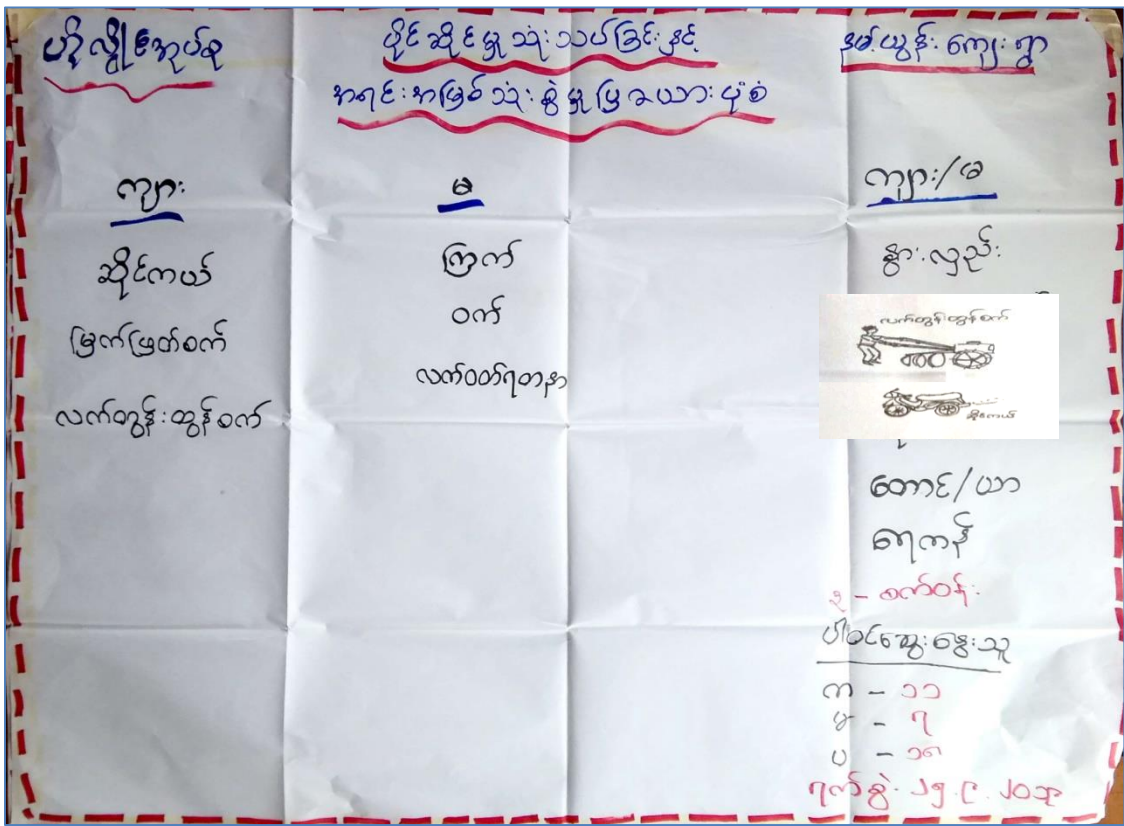 ဟိုလ္ဟိုင်အုပ်စု
ပိုင်ဆိုင်မှုသုံးသပ်ခြင်းနှင့်
အရင်းအမြစ်သုံးစွဲမှုပြဇယားပုံစံ
နမ့်ယွန်းကျေးရွာ
ကျား
ဆိုင်ကယ်
မြက်ဖြတ်စက်
လက်တွန်းထွန်စက်
မ
ကြက်
ဝက်
လက်ဝတ်ရတနာ
ကျား/မ
နွားလှည်း
လက်တွန်းထွန်စက်
ဆိုင်ကယ်
တောင်/ယာ
ရေကန်
၃ - စက်ဝန်း
ပါဝင်ဆွေးနွေးသူ
က - ၁၁
မ - ၇
ပ - ၁၈
ရက်စွဲ. ၂၅.၉.၂၀၁၃